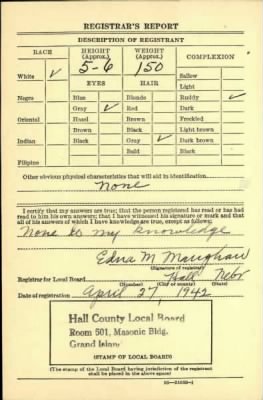 REGISTRAR'S REPORT
DESCRIPTION OF REGISTRANT
RACE HEIGHT (Approx.) WEIGHT (Approx.) COMPLEXION
5-6 150
White ✓ Sallow
EYES HAIR Light
Negro Blue Blonde Ruddy ✓
Gray ✓ Red Dark
Oriental Hazel Brown Freckled
Brown Black Light brown
Indian Black Gray ✓ Dark brown
Bald Black
Filipino
Other obvious physical characteristics that will aid in identification
None
I certify that my answers are true; that the person registered has read or has had
read to him his own answers; that I have witnessed his signature or mark and that
all of his answers of which I have knowledge are true, except as follows:
None to my knowledge
Edna M. Maughan
(Signature of registrar)
Registrar for Local Board Hall Nebr
(Number) (City or county) (State)
Date of registration April 27, 1942
Hall County Local Board
Room 501, Masonic Bldg.
Grand Island
(STAMP OF LOCAL BOARD)
(The stamp of the Local Board having jurisdiction of the registrant
shall be placed in the above space)